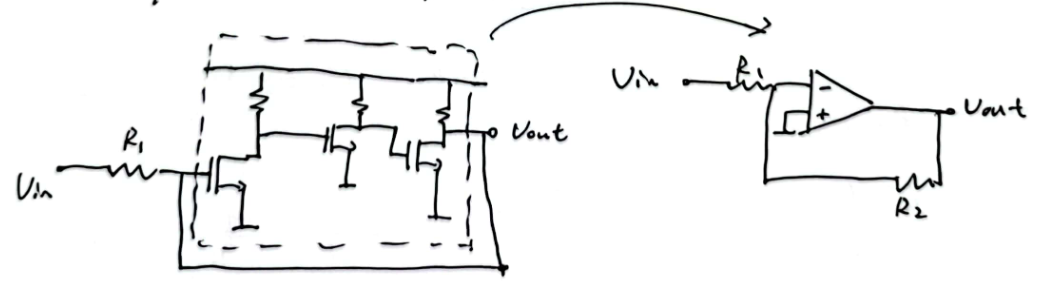 R1
Vin
Vout
Vin
R1
-
+
Vout
R2